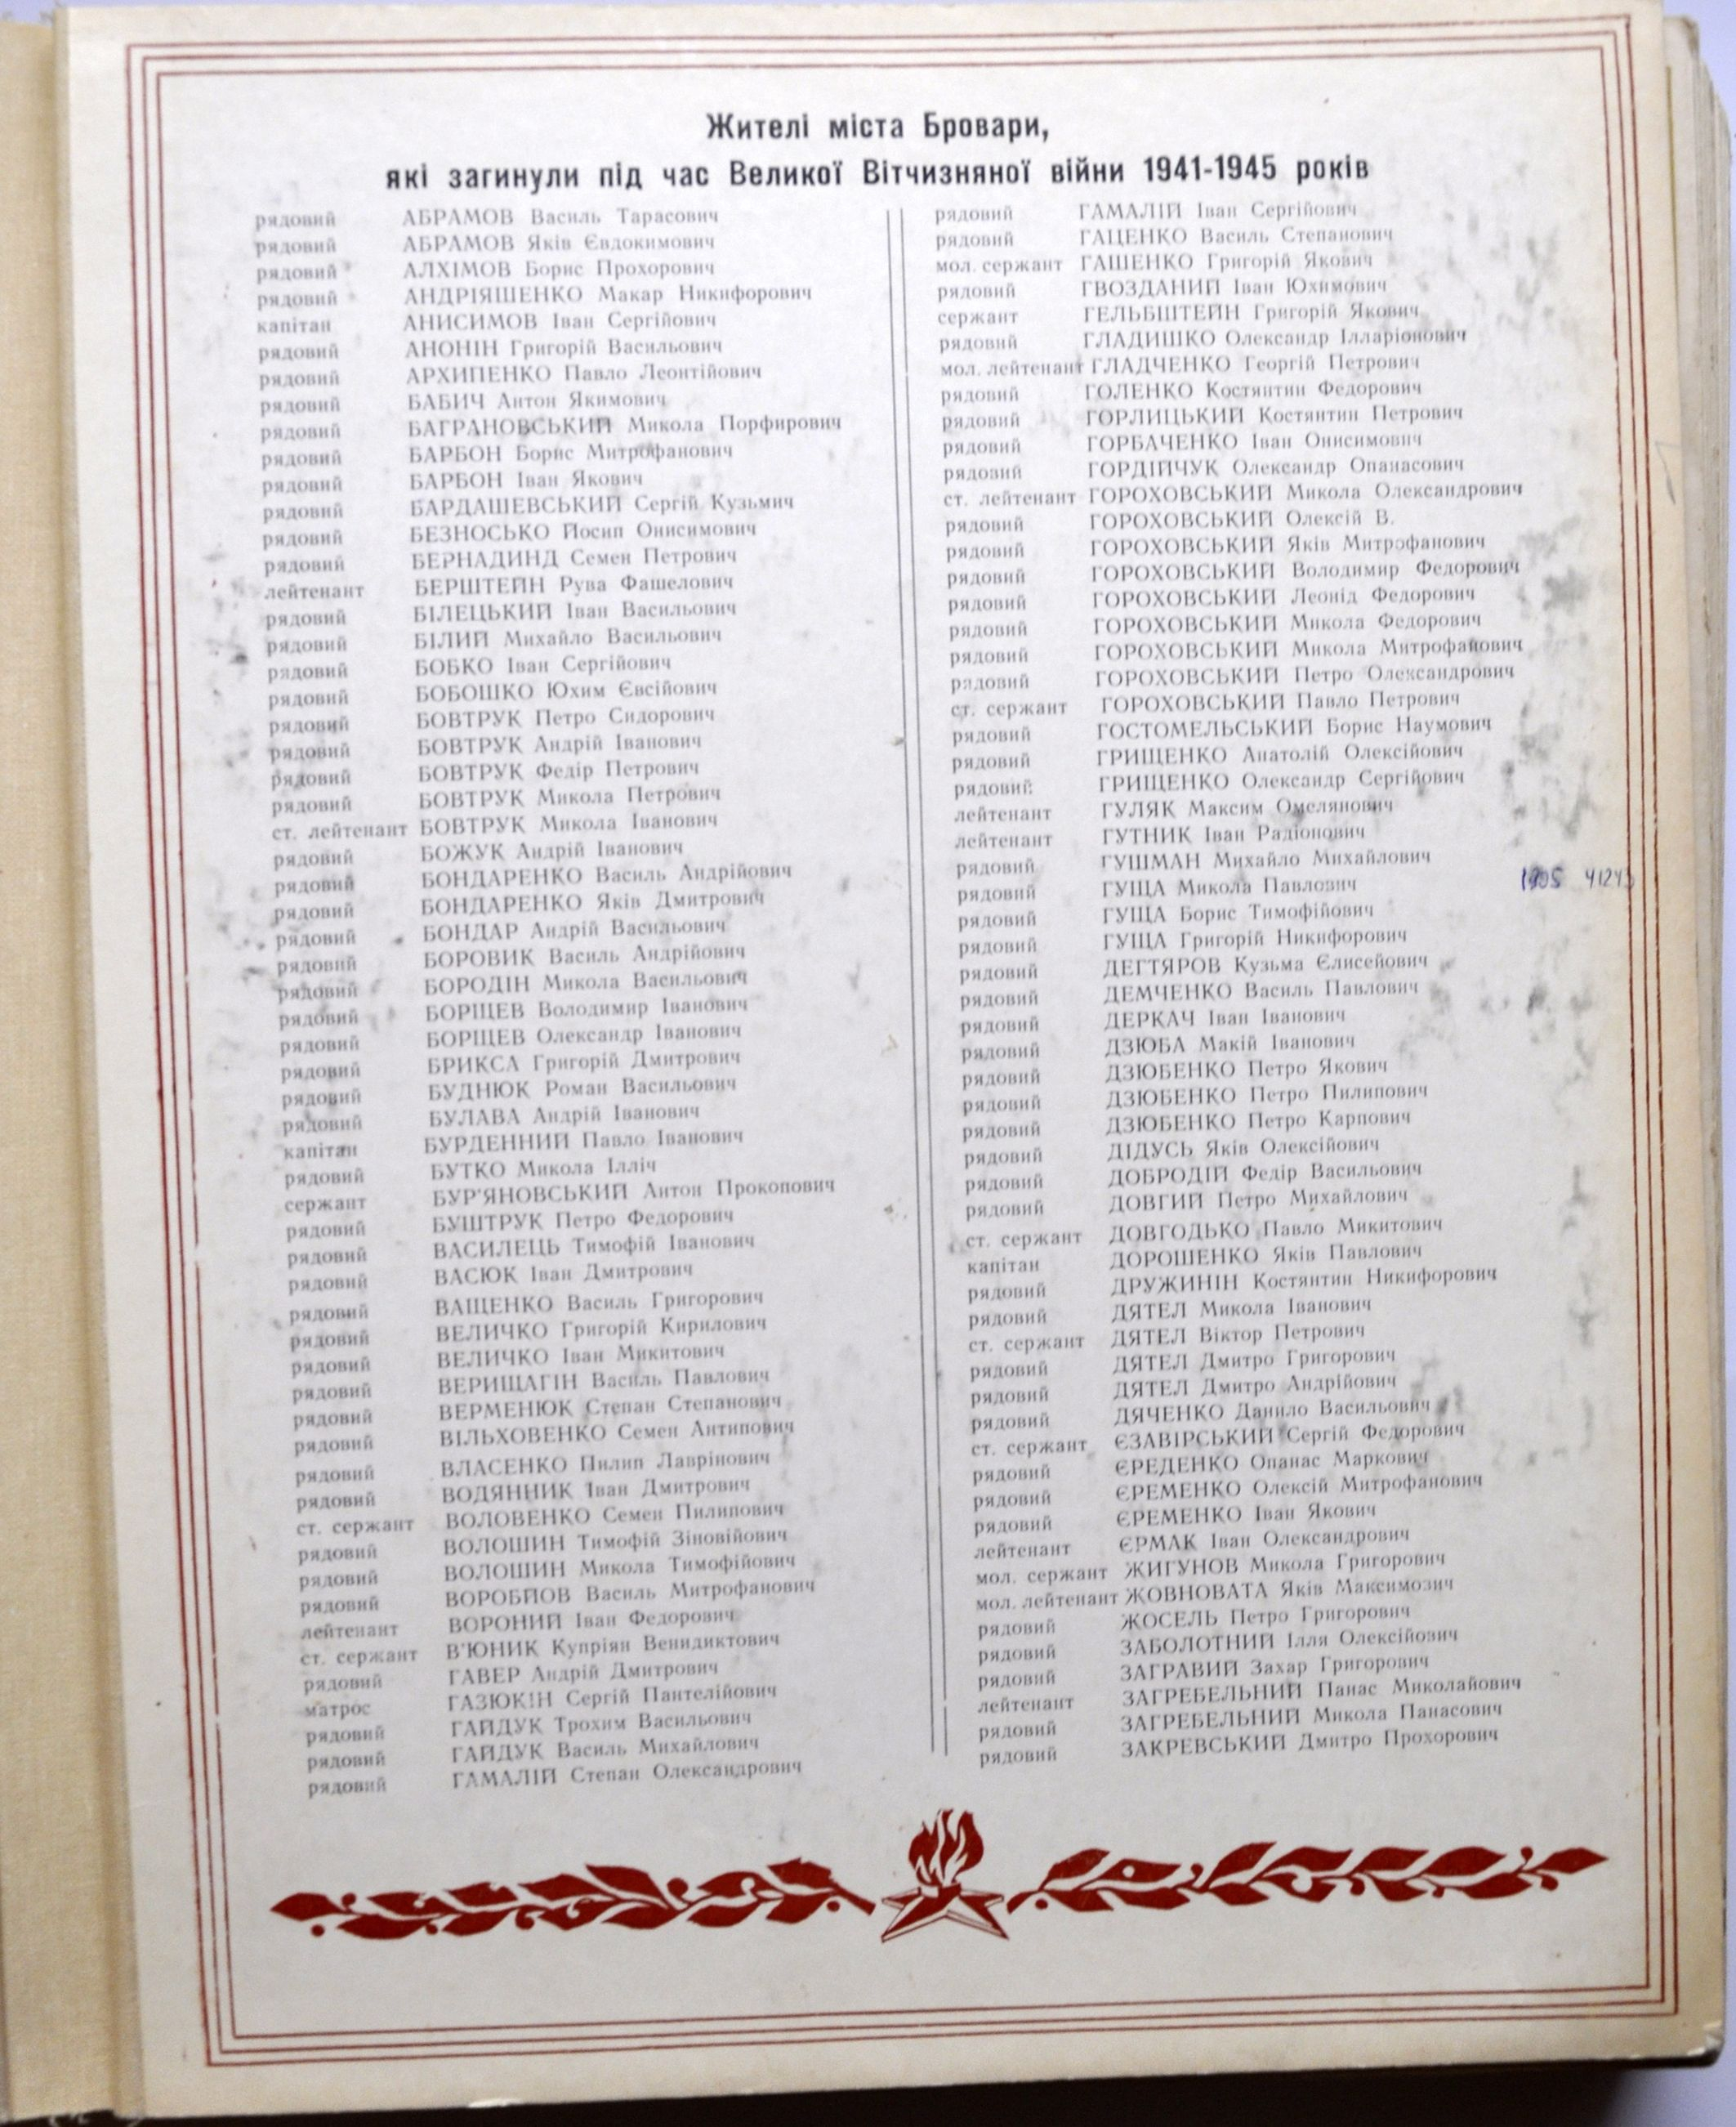 Жителі міста Бровари,
які загинули під час Великої Вітчизняної війни 1941-1945 років
рядовий АБРАМОВ Василь Тарасович
рядовий АБРАМОВ Яків Євдокимович
рядовий АЛХІМОВ Борис Прохорович
рядовий АНДРІЯШЕНКО Макар Никифорович
капітан АНИСИМОВ Іван Сергійович
рядовий АНОНІН Григорій Васильович
рядовий АРХИПЕНКО Павло Леонтійович
рядовий БАБИЧ Антон Якимович
рядовий БАГРАНОВСЬКИЙ Микола Порфирович
рядовий БАРБОН Борис Митрофанович
рядовий БАРБОН Іван Якович
рядовий БАРДАШЕВСЬКИЙ Сергій Кузьмич
рядовий БЕЗНОСЬКО Йосип Онисимович
рядовий БЕРНАДИНД Семен Петрович
лейтенант БЕРШТЕЙН Рува Фашелович
рядовий БІЛЕЦЬКИЙ Іван Васильович
рядовий БІЛИЙ Михайло Васильович
рядовий БОБКО Іван Сергійович
рядовий БОБОШКО Юхим Євсійович
рядовий БОВТРУК Петро Сидорович
рядовий БОВТРУК Андрій Іванович
рядовий БОВТРУК Федір Петрович
рядовий БОВТРУК Микола Петрович
ст. лейтенант БОВТРУК Микола Іванович
рядовий БОЖУК Андрій Іванович
рядовий БОНДАРЕНКО Василь Андрійович
рядовий БОНДАРЕНКО Яків Дмитрович
рядовий БОНДАР Андрій Васильович
рядовий БОРОВИК Василь Андрійович
рядовий БОРОДІН Микола Васильович
рядовий БОРЩЕВ Володимир Іванович
рядовий БОРЩЕВ Олександр Іванович
рядовий БРИКСА Григорій Дмитрович
рядовий БУДНЮК Роман Васильович
рядовий БУЛАВА Андрій Іванович
капітан БУРДЕННИЙ Павло Іванович
рядовий БУТКО Микола Ілліч
сержант БУР'ЯНОВСЬКИЙ Антон Прокопович
рядовий БУШТРУК Петро Федорович
рядовий ВАСИЛЕЦЬ Тимофій Іванович
рядовий ВАСЮК Іван Дмитрович
рядовий ВАЩЕНКО Василь Григорович
рядовий ВЕЛИЧКО Григорій Кирилович
рядовий ВЕЛИЧКО Іван Микитович
рядовий ВЕРИЩАГІН Василь Павлович
рядовий ВЕРМЕНЮК Степан Степанович
рядовий ВІЛЬХОВЕНКО Семен Антипович
рядовий ВЛАСЕНКО Пилип Лаврінович
рядовий ВОДЯННИК Іван Дмитрович
ст. сержант ВОЛОВЕНКО Семен Пилипович
рядовий ВОЛОШИН Тимофій Зіновійович
рядовий ВОЛОШИН Микола Тимофійович
рядовий ВОРОБЙОВ Василь Митрофанович
лейтенант ВОРОНИЙ Іван Федорович
ст. сержант В'ЮНИК Купріян Венидиктович
рядовий ГАВЕР Андрій Дмитрович
матрос ГАЗЮКІН Сергій Пантелійович
рядовий ГАЙДУК Трохим Васильович
рядовий ГАЙДУК Василь Михайлович
рядовий ГАМАЛІЙ Степан Олександрович
рядовий ГАМАЛІЙ Іван Сергійович
рядовий ГАЦЕНКО Василь Степанович
мол. сержант ГАШЕНКО Григорій Якович
рядовий ГВОЗДАНИЙ Іван Юхимович
сержант ГЕЛЬБШТЕЙН Григорій Якович
рядовий ГЛАДИШКО Олександр Ілларіонович
мол. лейтенант ГЛАДЧЕНКО Георгій Петрович
рядовий ГОЛЕНКО Костянтин Федорович
рядовий ГОРЛИЦЬКИЙ Костянтин Петрович
рядовий ГОРБАЧЕНКО Іван Онисимович
рядовий ГОРДІЙЧУК Олександр Опанасович
ст. лейтенант ГОРОХОВСЬКИЙ Микола Олександрович
рядовий ГОРОХОВСЬКИЙ Олексій В.
рядовий ГОРОХОВСЬКИЙ Яків Митрофанович
рядовий ГОРОХОВСЬКИЙ Володимир Федорович
рядовий ГОРОХОВСЬКИЙ Леонід Федорович
рядовий ГОРОХОВСЬКИЙ Микола Федорович
рядовий ГОРОХОВСЬКИЙ Микола Митрофанович
рядовий ГОРОХОВСЬКИЙ Петро Олександрович
ст. сержант ГОРОХОВСЬКИЙ Павло Петрович
рядовий ГОСТОМЕЛЬСЬКИЙ Борис Наумович
рядовий ГРИЩЕНКО Анатолій Олексійович
рядовий ГРИЩЕНКО Олександр Сергійович
лейтенант ГУЛЯК Максим Омелянович
лейтенант ГУТНИК Іван Радіонович
рядовий ГУШМАН Михайло Михайлович
рядовий ГУЩА Микола Павлович 1905
рядовий ГУЩА Борис Тимофійович
рядовий ГУЩА Григорій Никифорович
рядовий ДЕГТЯРОВ Кузьма Єлисейович
рядовий ДЕМЧЕНКО Василь Павлович
рядовий ДЕРКАЧ Іван Іванович
рядовий ДЗЮБА Макій Іванович
рядовий ДЗЮБЕНКО Петро Якович
рядовий ДЗЮБЕНКО Петро Пилипович
рядовий ДЗЮБЕНКО Петро Карпович
рядовий ДІДУСЬ Яків Олексійович
рядовий ДОБРОДІЙ Федір Васильович
рядовий ДОВГИЙ Петро Михайлович
ст. сержант ДОВГОДЬКО Павло Микитович
капітан ДОРОШЕНКО Яків Павлович
рядовий ДРУЖИНІН Костянтин Никифорович
рядовий ДЯТЕЛ Микола Іванович
ст. сержант ДЯТЕЛ Віктор Петрович
рядовий ДЯТЕЛ Дмитро Григорович
рядовий ДЯТЕЛ Дмитро Андрійович
рядовий ДЯЧЕНКО Данило Васильович
ст. сержант ЄЗАВІРСЬКИЙ Сергій Федорович
рядовий ЄРЕДЕНКО Опанас Маркович
рядовий ЄРЕМЕНКО Олексій Митрофанович
рядовий ЄРЕМЕНКО Іван Якович
лейтенант ЄРМАК Іван Олександрович
мол. сержант ЖИГУНОВ Микола Григорович
мол. лейтенант ЖОВНОВАТА Яків Максимович
рядовий ЖОСЕЛЬ Петро Григорович
рядовий ЗАБОЛОТНИЙ Ілля Олексійович
рядовий ЗАГРАВИЙ Захар Григорович
лейтенант ЗАГРЕБЕЛЬНИЙ Панас Миколайович
рядовий ЗАГРЕБЕЛЬНИЙ Микола Панасович
рядовий ЗАКРЕВСЬКИЙ Дмитро Прохорович